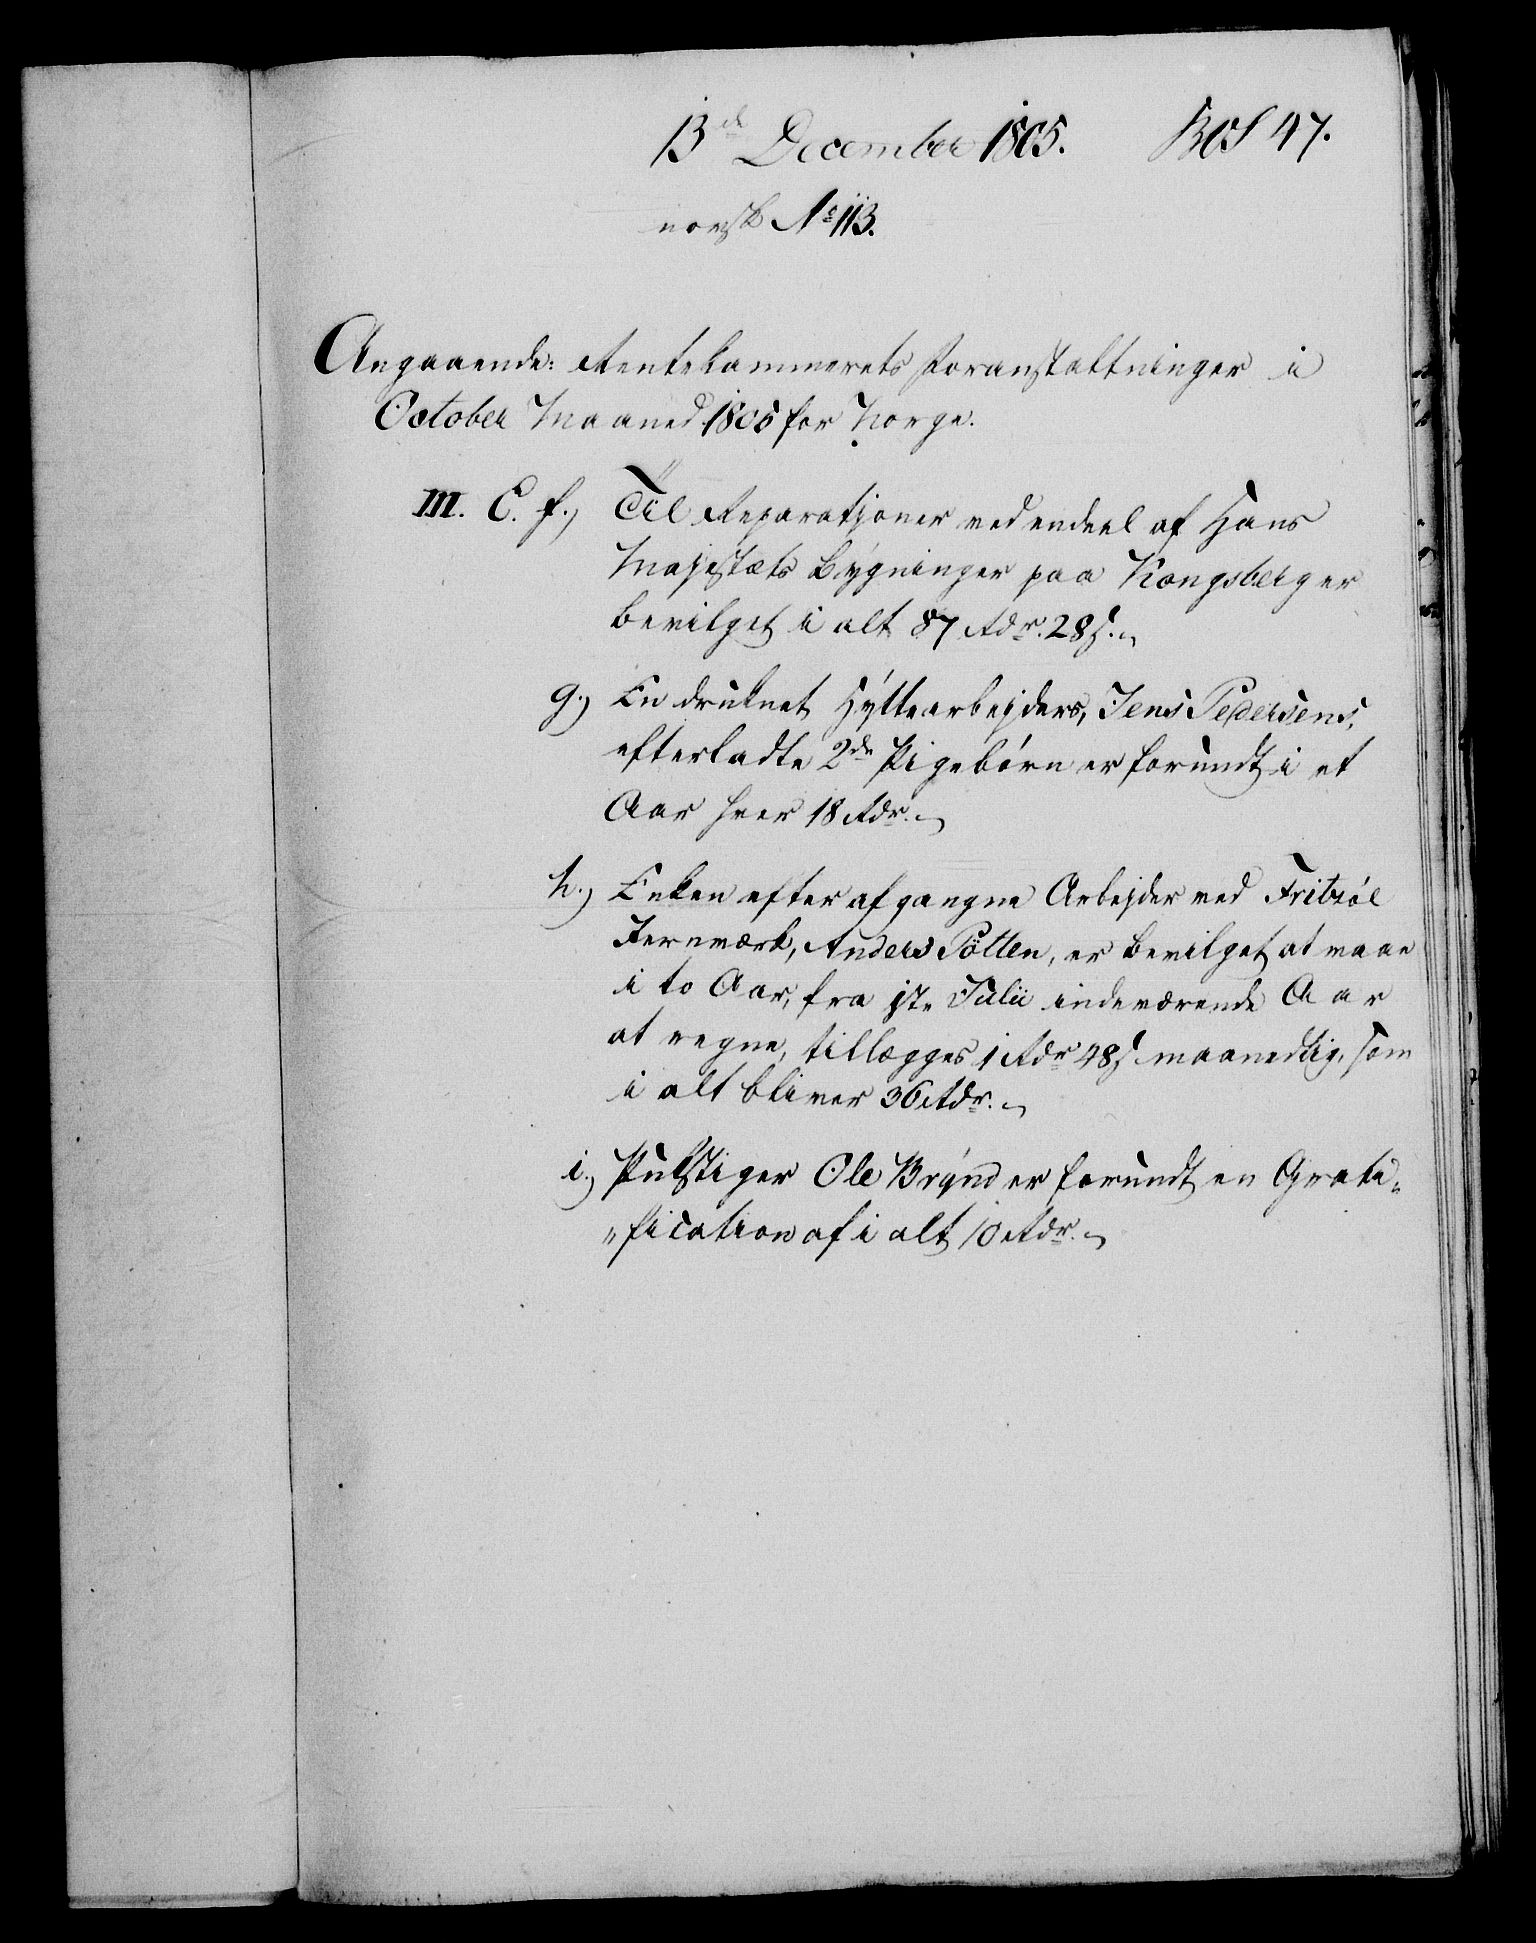 13de December 1805. RCS 47.
norsk No 113.
Angaaende: Rentekammerets Foranstaltninger i
October Maaned 1805 for Norge.
III. C. f.) Til Reparationer ved endeel af Hans
Majestæts Bygninger paa Kongsberg er
bevilget i alt 87 Rdr. 28 s.
g.) En druknet Hyttearbejders, Jens Pedersens,
efterladte 2de Pigebørn er forundt i et
Aar hver 18 Rdr.
h.) Enken efter afgangne Arbejder ved Fritzöe
Jernværk, Anders Pötten, er bevilget at maae
i to Aar, fra 1ste Julii indeværende Aar
at regne, tillægges 1 Rdr 48 s maanedlig, som
i alt bliver 36 Rdr.
i.) Pukstiger Ole Brýnd er forundt en Grati-
fication af i alt 10 Rdr.